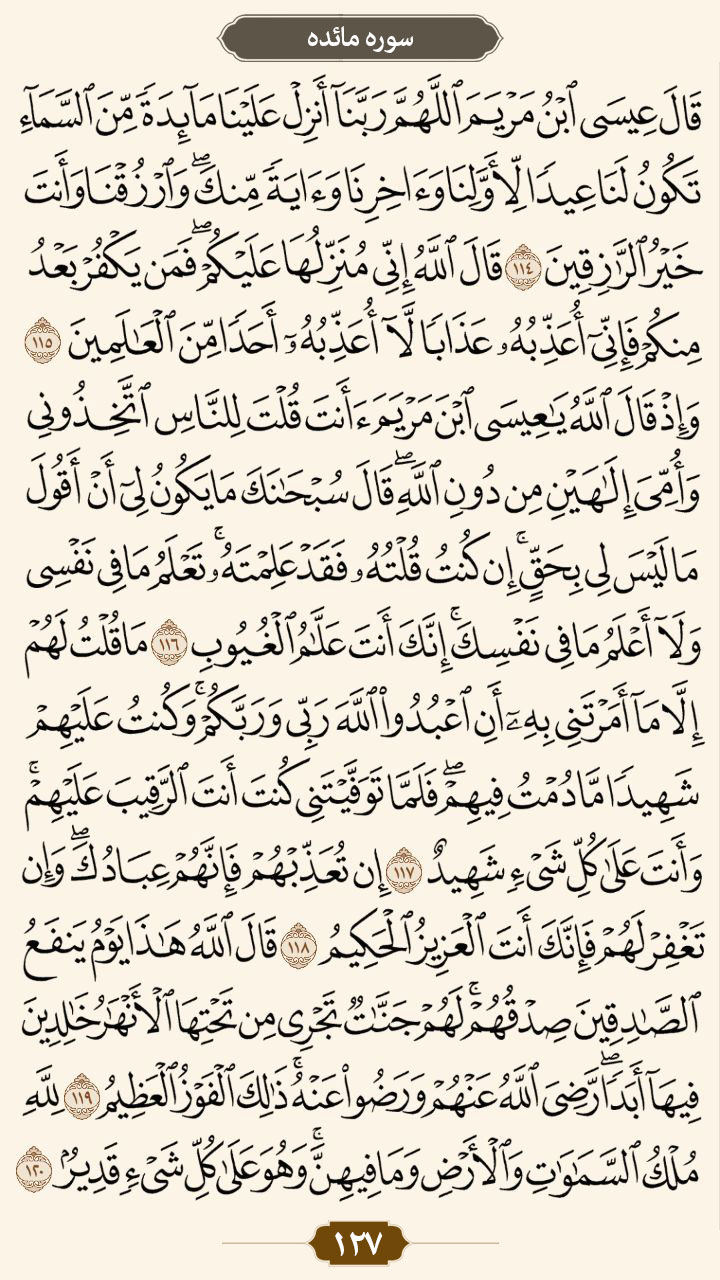 سوره مائده
قَالَ عِيسَى ٱبْنُ مَرْيَمَ ٱللَّهُمَّ رَبَّنَآ أَنزِلْ عَلَيْنَا مَآئِدَةً مِّنَ ٱلسَّمَآءِ
تَكُونُ لَنَا عِيدًا لِّأَوَّلِنَا وَءَاخِرِنَا وَءَايَةً مِّنكَۖ وَٱرْزُقْنَا وَأَنتَ
خَيْرُ ٱلرَّٰزِقِينَ ١١٤ قَالَ ٱللَّهُ إِنِّي مُنَزِّلُهَا عَلَيْكُمْۖ فَمَن يَكْفُرْ بَعْدُ
مِنكُمْ فَإِنِّيٓ أُعَذِّبُهُۥ عَذَابًا لَّآ أُعَذِّبُهُۥٓ أَحَدًا مِّنَ ٱلْعَٰلَمِينَ ١١٥
وَإِذْ قَالَ ٱللَّهُ يَٰعِيسَى ٱبْنَ مَرْيَمَ ءَأَنتَ قُلْتَ لِلنَّاسِ ٱتَّخِذُونِي
وَأُمِّيَ إِلَٰهَيْنِ مِن دُونِ ٱللَّهِۖ قَالَ سُبْحَٰنَكَ مَا يَكُونُ لِيٓ أَنْ أَقُولَ
مَا لَيْسَ لِي بِحَقٍّۚ إِن كُنتُ قُلْتُهُۥ فَقَدْ عَلِمْتَهُۥۚ تَعْلَمُ مَا فِي نَفْسِي
وَلَآ أَعْلَمُ مَا فِي نَفْسِكَۚ إِنَّكَ أَنتَ عَلَّٰمُ ٱلْغُيُوبِ ١١٦ مَا قُلْتُ لَهُمْ
إِلَّا مَآ أَمَرْتَنِي بِهِۦٓ أَنِ ٱعْبُدُوا۟ ٱللَّهَ رَبِّي وَرَبَّكُمْۚ وَكُنتُ عَلَيْهِمْ
شَهِيدًا مَّا دُمْتُ فِيهِمْۖ فَلَمَّا تَوَفَّيْتَنِي كُنتَ أَنتَ ٱلرَّقِيبَ عَلَيْهِمْۚ
وَأَنتَ عَلَىٰ كُلِّ شَيْءٍ شَهِيدٌ ١١٧ إِن تُعَذِّبْهُمْ فَإِنَّهُمْ عِبَادُكَۖ وَإِن
تَغْفِرْ لَهُمْ فَإِنَّكَ أَنتَ ٱلْعَزِيزُ ٱلْحَكِيمُ ١١٨ قَالَ ٱللَّهُ هَٰذَا يَوْمُ يَنفَعُ
ٱلصَّٰدِقِينَ صِدْقُهُمْۚ لَهُمْ جَنَّٰتٌ تَجْرِي مِن تَحْتِهَا ٱلْأَنْهَٰرُ خَٰلِدِينَ
فِيهَآ أَبَدًاۖ رَّضِيَ ٱللَّهُ عَنْهُمْ وَرَضُوا۟ عَنْهُۚ ذَٰلِكَ ٱلْفَوْزُ ٱلْعَظِيمُ ١١٩ لِلَّهِ
مُلْكُ ٱلسَّمَٰوَٰتِ وَٱلْأَرْضِ وَمَا فِيهِنَّۚ وَهُوَ عَلَىٰ كُلِّ شَيْءٍ قَدِيرٌۢ ١٢٠
١٢٧